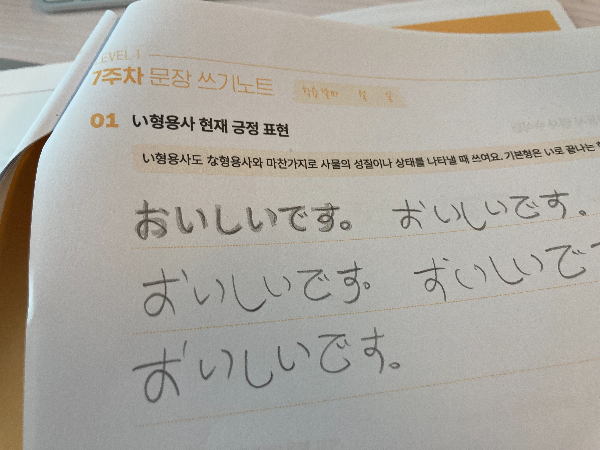 LEVEL 1
1주차 문장 쓰기노트
학습 날짜 월 일
01 い형용사 현재 긍정 표현
い형용사도 な형용사와 마찬가지로 사물의 성질이나 상태를 나타낼 때 쓰여요. 기본형은 い로 끝나는
おいしいです。 おいしいです。
おいしいです。 おいしいで
おいしいです。